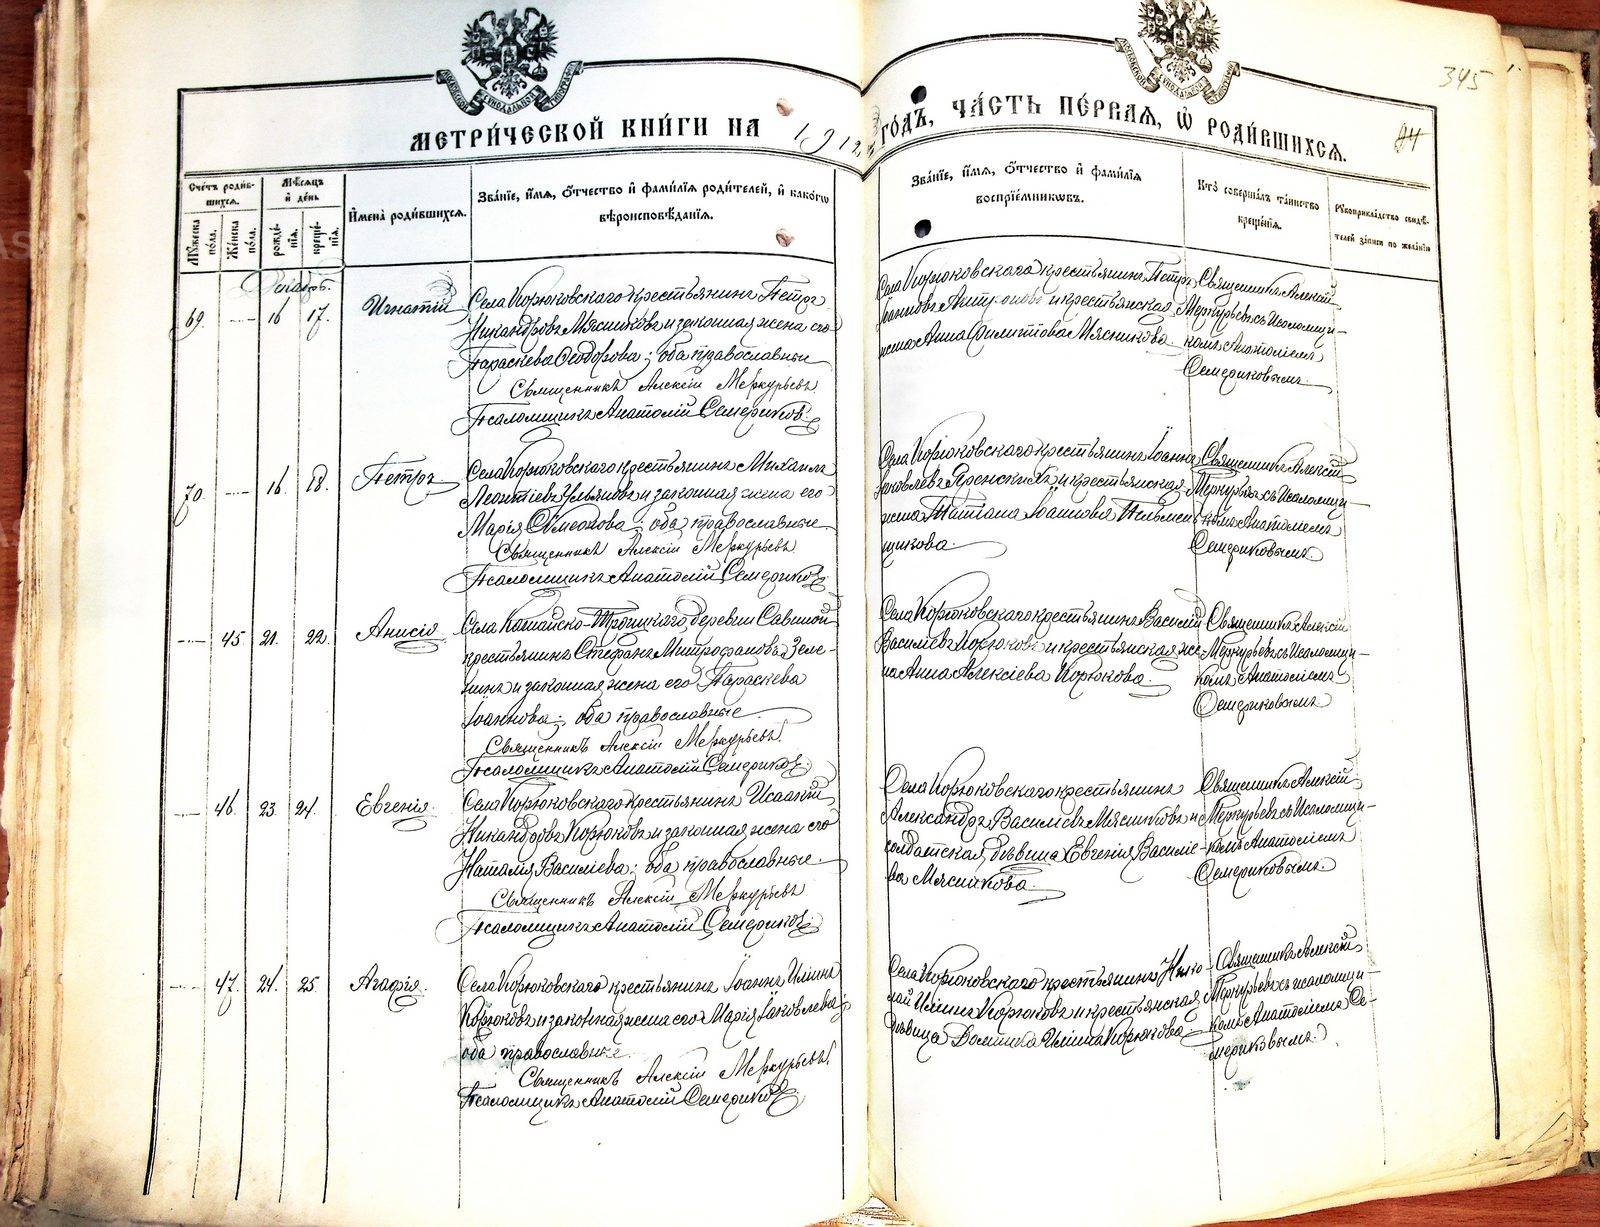 345
84
МЕТРИ́ЧЕСКОЙ КНИ́ГИ НА 1912 ГО́ДЪ, ЧА́СТЬ ПЕ́РВАЯ, Ѡ РОДИ́ВШИХСЯ.
Сче́тъ роди́в-
шихся.
Му́жеска по́ла.
Же́нска по́ла.
Мѣ́сяцъ
и҆ де́нь
рожде́-
нїѧ.
креще́-
нїѧ.
И҆мена̀ роди́вшихся.
Зва́нїе, и҆́мя, ѻ҆́тчество и҆ фамѝлїя роди́телей, и҆ како́гѡ
вѣроисповѣ́данїя.
Зва́нїе, и҆́мя, ѻ҆́тчество и҆ фамѝлїя
воспрїе́мникѡвъ.
Кто̀ соверша́лъ та́инство
креще́нїя.
Рꙋкоприкла́дство свидѣ́-
телей за́писи по жела́нїю
Декабрь.
69 — 16 17. Игнатій
Села Корюковскаго крестьянинъ Петръ
Никандровъ Мясниковъ и законная жена его
Параскева Ѳеодорова; оба православные
Священникъ Алексій Меркурьевъ
Псаломщикъ Анатолій Семериковъ.
Села Корюковскаго крестьянинъ Петръ
Іоанновъ Антроповъ и крестьянская
жена Анна Филиппова Мясникова
Священникъ Алексій
Меркурьевъ съ псаломщи-
комъ Анатоліемъ
Семериковымъ.
70 — 16. 18. Петръ
Села Корюковскаго крестьянинъ Михаилъ
Леонтіевъ Ульяновъ и законная жена его
Марія Симеонова; оба православные
Священникъ Алексій Меркурьевъ
Псаломщикъ Анатолій Семериковъ
Села Корюковскаго крестьянинъ Іоаннъ
Іаковлевъ Яренскихъ и крестьянская
жена Татіана Іоаннова Пельмен-
щикова.
Священникъ Алексій
Меркурьевъ съ псаломщи-
комъ Анатоліемъ
Семериковымъ
— 45. 21. 22. Анисія
Села Катайско-Троицкаго, деревни Савиной
крестьянинъ Стефанъ Митрофановъ Зеле-
нинъ и законная жена его Параскева
Іоаннова; оба православные
Священникъ Алексій Меркурьевъ
Псаломщикъ Анатолій Семериковъ
Села Корюковскаго крестьянинъ Василій
Василіевъ Корюковъ и крестьянская же-
на Анна Алексіева Корюкова.
Священникъ Алексій
Меркурьевъ съ псаломщи-
комъ Анатоліемъ
Семериковымъ
— 46. 23. 24. Евгенія.
Села Корюковскаго крестьянинъ Исаакій
Никандровъ Корюковъ и законная жена его
Наталія Василіева; оба православные.
Священникъ Алексій Меркурьевъ
Псаломщикъ Анатолій Семериковъ
Села Корюковскаго крестьянинъ
Александръ Василіевъ Мясниковъ и
солдатская дѣвица Евгенія Василіе-
ва Мясникова.
Священникъ Алексій
Меркурьевъ съ псаломщи-
комъ Анатоліемъ
Семериковымъ.
— 47. 24. 25 Агафія.
Села Корюковскаго крестьянинъ Іоаннъ Иліинъ
Корюковъ и законная жена его Марія Іаковлева;
оба православные.
Священникъ Алексій Меркурьевъ
Псаломщикъ Анатолій Семериковъ
Села Корюковскаго крестьянинъ Нико-
лай Иліинъ Корюковъ и крестьянская
дѣвица Домника Иліина Корюкова.
Священникъ Алексій
Меркурьевъ съ псаломщи-
комъ Анатоліемъ Се-
мериковымъ.